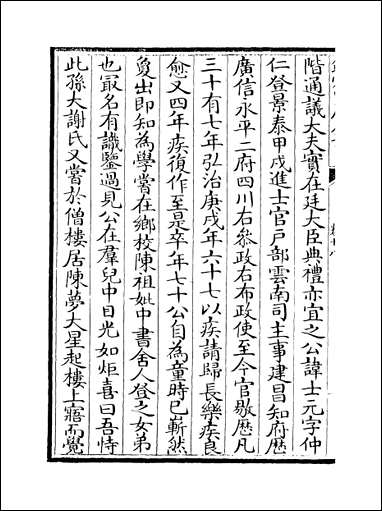 階通議大夫實在廷大臣典禮亦宜之公諱士元字仲
仁登景泰甲戌進士官戶部雲南司主事建昌知府歷
廣信永平二府四川右參政右布政使至今官敭歷凡
三十有七年弘治庚戌年六十七以疾請歸長樂疾良
愈又四年疾復作至是卒年七十公自為童時已嶄然
負出即知為學嘗在鄉校陳祖妣中書舍人登之女弟
也冣名有識鑒過見公在羣兒中目光如炬喜曰吾恃
此孫大謝氏又嘗於僧樓居陳夢大星起樓上寤而覺